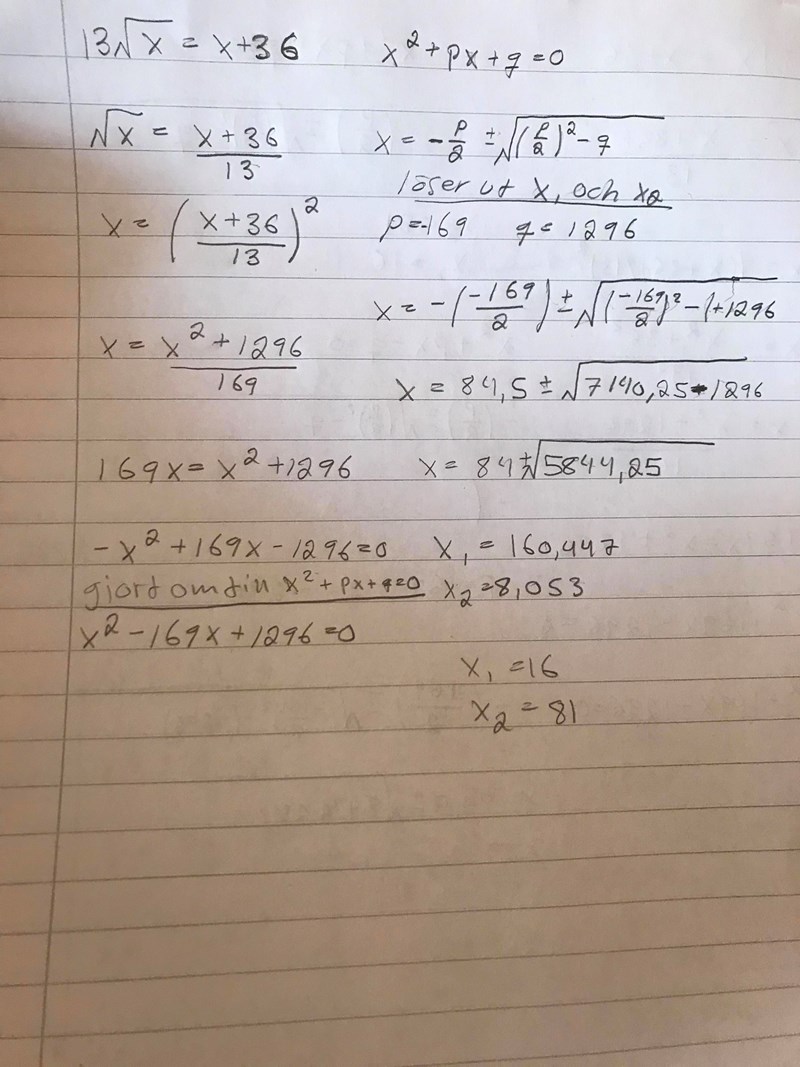 13√x = x+36
√x = x+36
13
x = (x+36)²
13
x = x²+1296
169
169x = x²+1296
-x²+169x-1296=0
giort om tin x²+px+q=0
x²-169x+1296=0
x²+px+q=0
x = -p/2 ±√(p/2)²-q
löser ut x₁ och x₂
p=-169 q=1296
x = -(-169/2) ± √(-169/2)²-(+1296
x = 84,5 ± √7140,25-1296
x = 84±√5844,25
x₁ = 160,447
x₂=8,053
x₁ =16
x₂ = 81